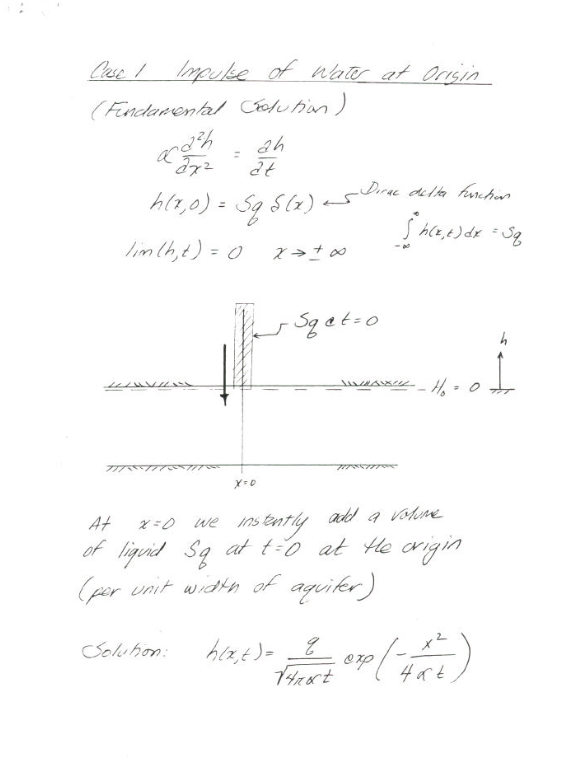 Case 1 Impulse of Water at Origin
(Fundamental Solution)
α ∂²h/∂x² = ∂h/∂t
h(x,0) = Sq δ(x) ← Dirac delta function
∫_{-∞}^{∞} h(x,t)dx = Sq
lim(h,t) = 0 x → ± ∞
Sq @ t=0
h
H₀ = 0
x=0
At x=0 we instently add a volume
of liquid Sq at t=0 at the origin
(per unit width of aquifer)
Solution: h(x,t) = q/√(4παt) exp(-x²/(4αt))